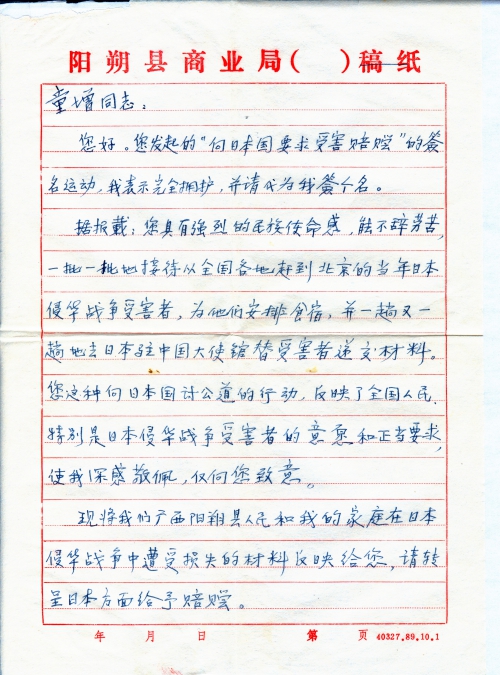 阳朔县商业局( )稿纸
童增同志：
您好。您发起的“向日本国要求受害赔偿”的签
名运动，我表示完全拥护，并请代为我签个名。
据报载：您具有强烈的民族使命感，能不辞劳苦，
一批一批地接待从全国各地赶到北京的当年日本
侵华战争受害者，为他们安排食宿，并一趟又一
趟地去日本驻中国大使馆替受害者递交材料。
您这种向日本国讨公道的行动，反映了全国人民、
特别是日本侵华战争受害者的意愿和正当要求，
使我深感敬佩，仅向您致意。
现将我们广西阳朔县人民和我的家庭在日本
侵华战争中遭受损失的材料反映给您，请转
呈日本方面给予赔偿。
年 月 日 第 页 40327.89.10.1